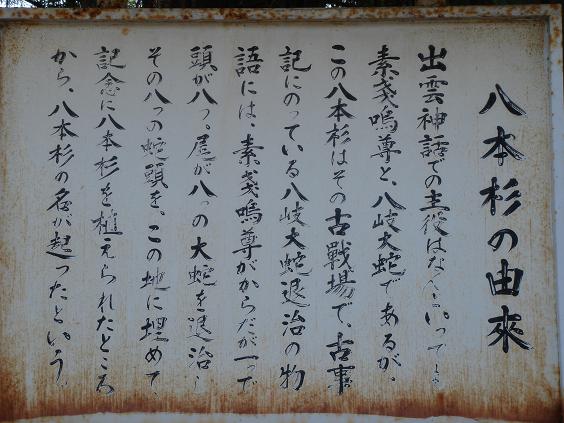 八本杉の由來
出雲神話での主役はなんといっても
素戔嗚尊と、八岐大蛇であるが、
この八本杉はその古戦場で、古事
記にのっている八岐大蛇退治の物
語には、素戔嗚尊がからだが一つで
頭が八つ。尾が八つの大蛇を退治し
その八つの蛇頭を、この地に埋めて、
記念に八本杉を植えられたところ
から、八本杉の名が起ったという。